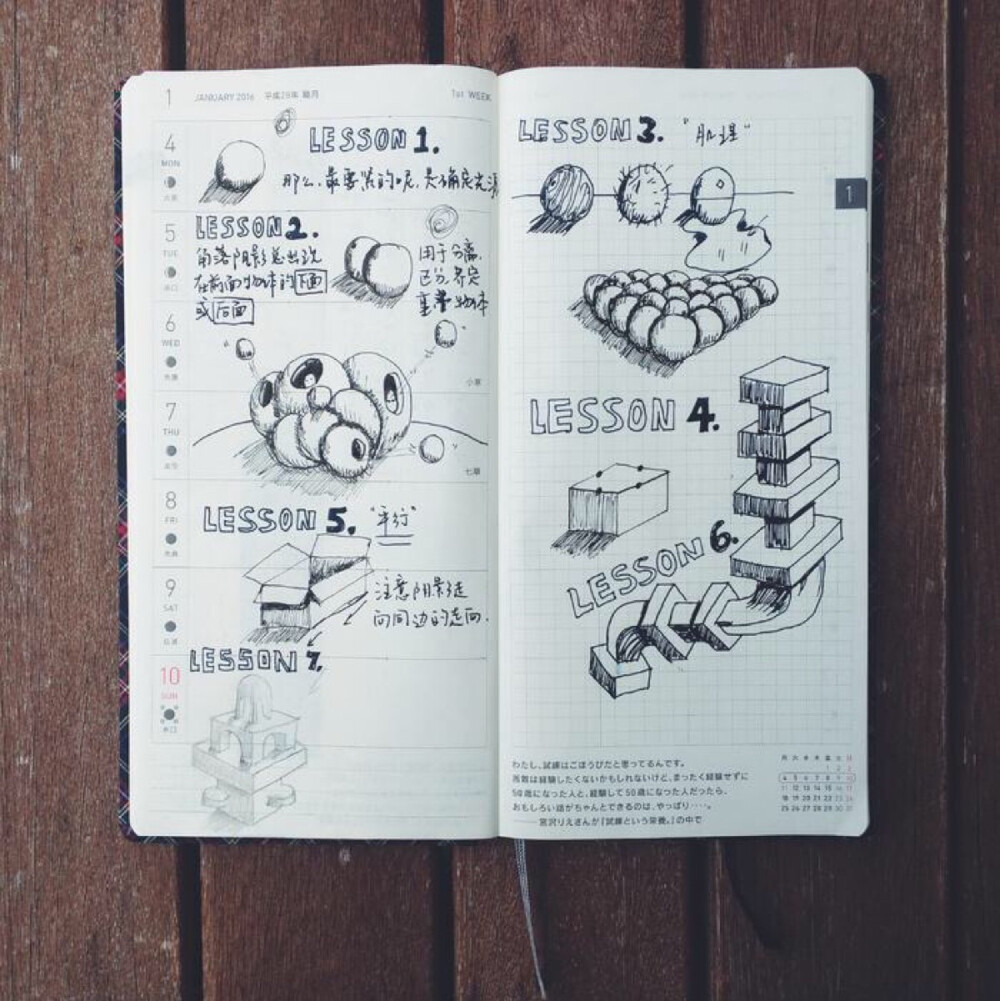 1 JANUARY 2016 平成28年 睦月 1st WEEK
4
MON
LESSON 1.
那么,最要紧的呢,是确定光源
5
TUE
LESSON 2.
角落阴影总出现
在前面物体的下面
或后面
用于分离,
区分,界定
重叠物体
6
WED
小寒
7
THU
七草
8
FRI
LESSON 5. "平行"
9
SAT
注意阴影走
向同边的走向.
10
SUN
LESSON 7.
LESSON 3. "肌理"
1
LESSON 4.
LESSON 6.
わたし、試練はごほうびだと思ってるんです。
苦難は経験したくないかもしれないけど、まったく経験せずに
50歳になった人と、経験して50歳になった人だったら、
おもしろい話がちゃんとできるのは、やっぱり‥‥。
——宮沢りえさんが『試練という栄養。』の中で
月 火 水 木 金 土 日
1 2 3
4 5 6 7 8 9 10
11 12 13 14 15 16 17
18 19 20 21 22 23 24
25 26 27 28 29 30 31